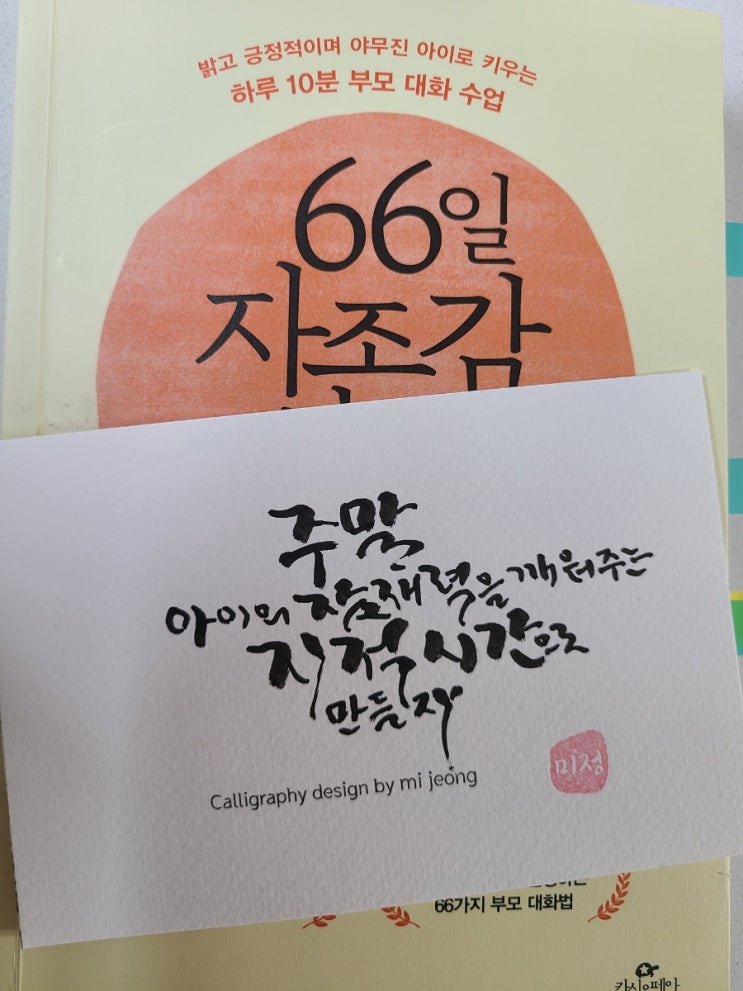 밝고 긍정적이며 야무진 아이로 키우는
하루 10분 부모 대화 수업
66일
자존감
주말
아이의 잠재력을 깨워주는
지적 시간으로
만들자
미정
Calligraphy design by mi jeong
66가지 부모 대화법
카시오페아